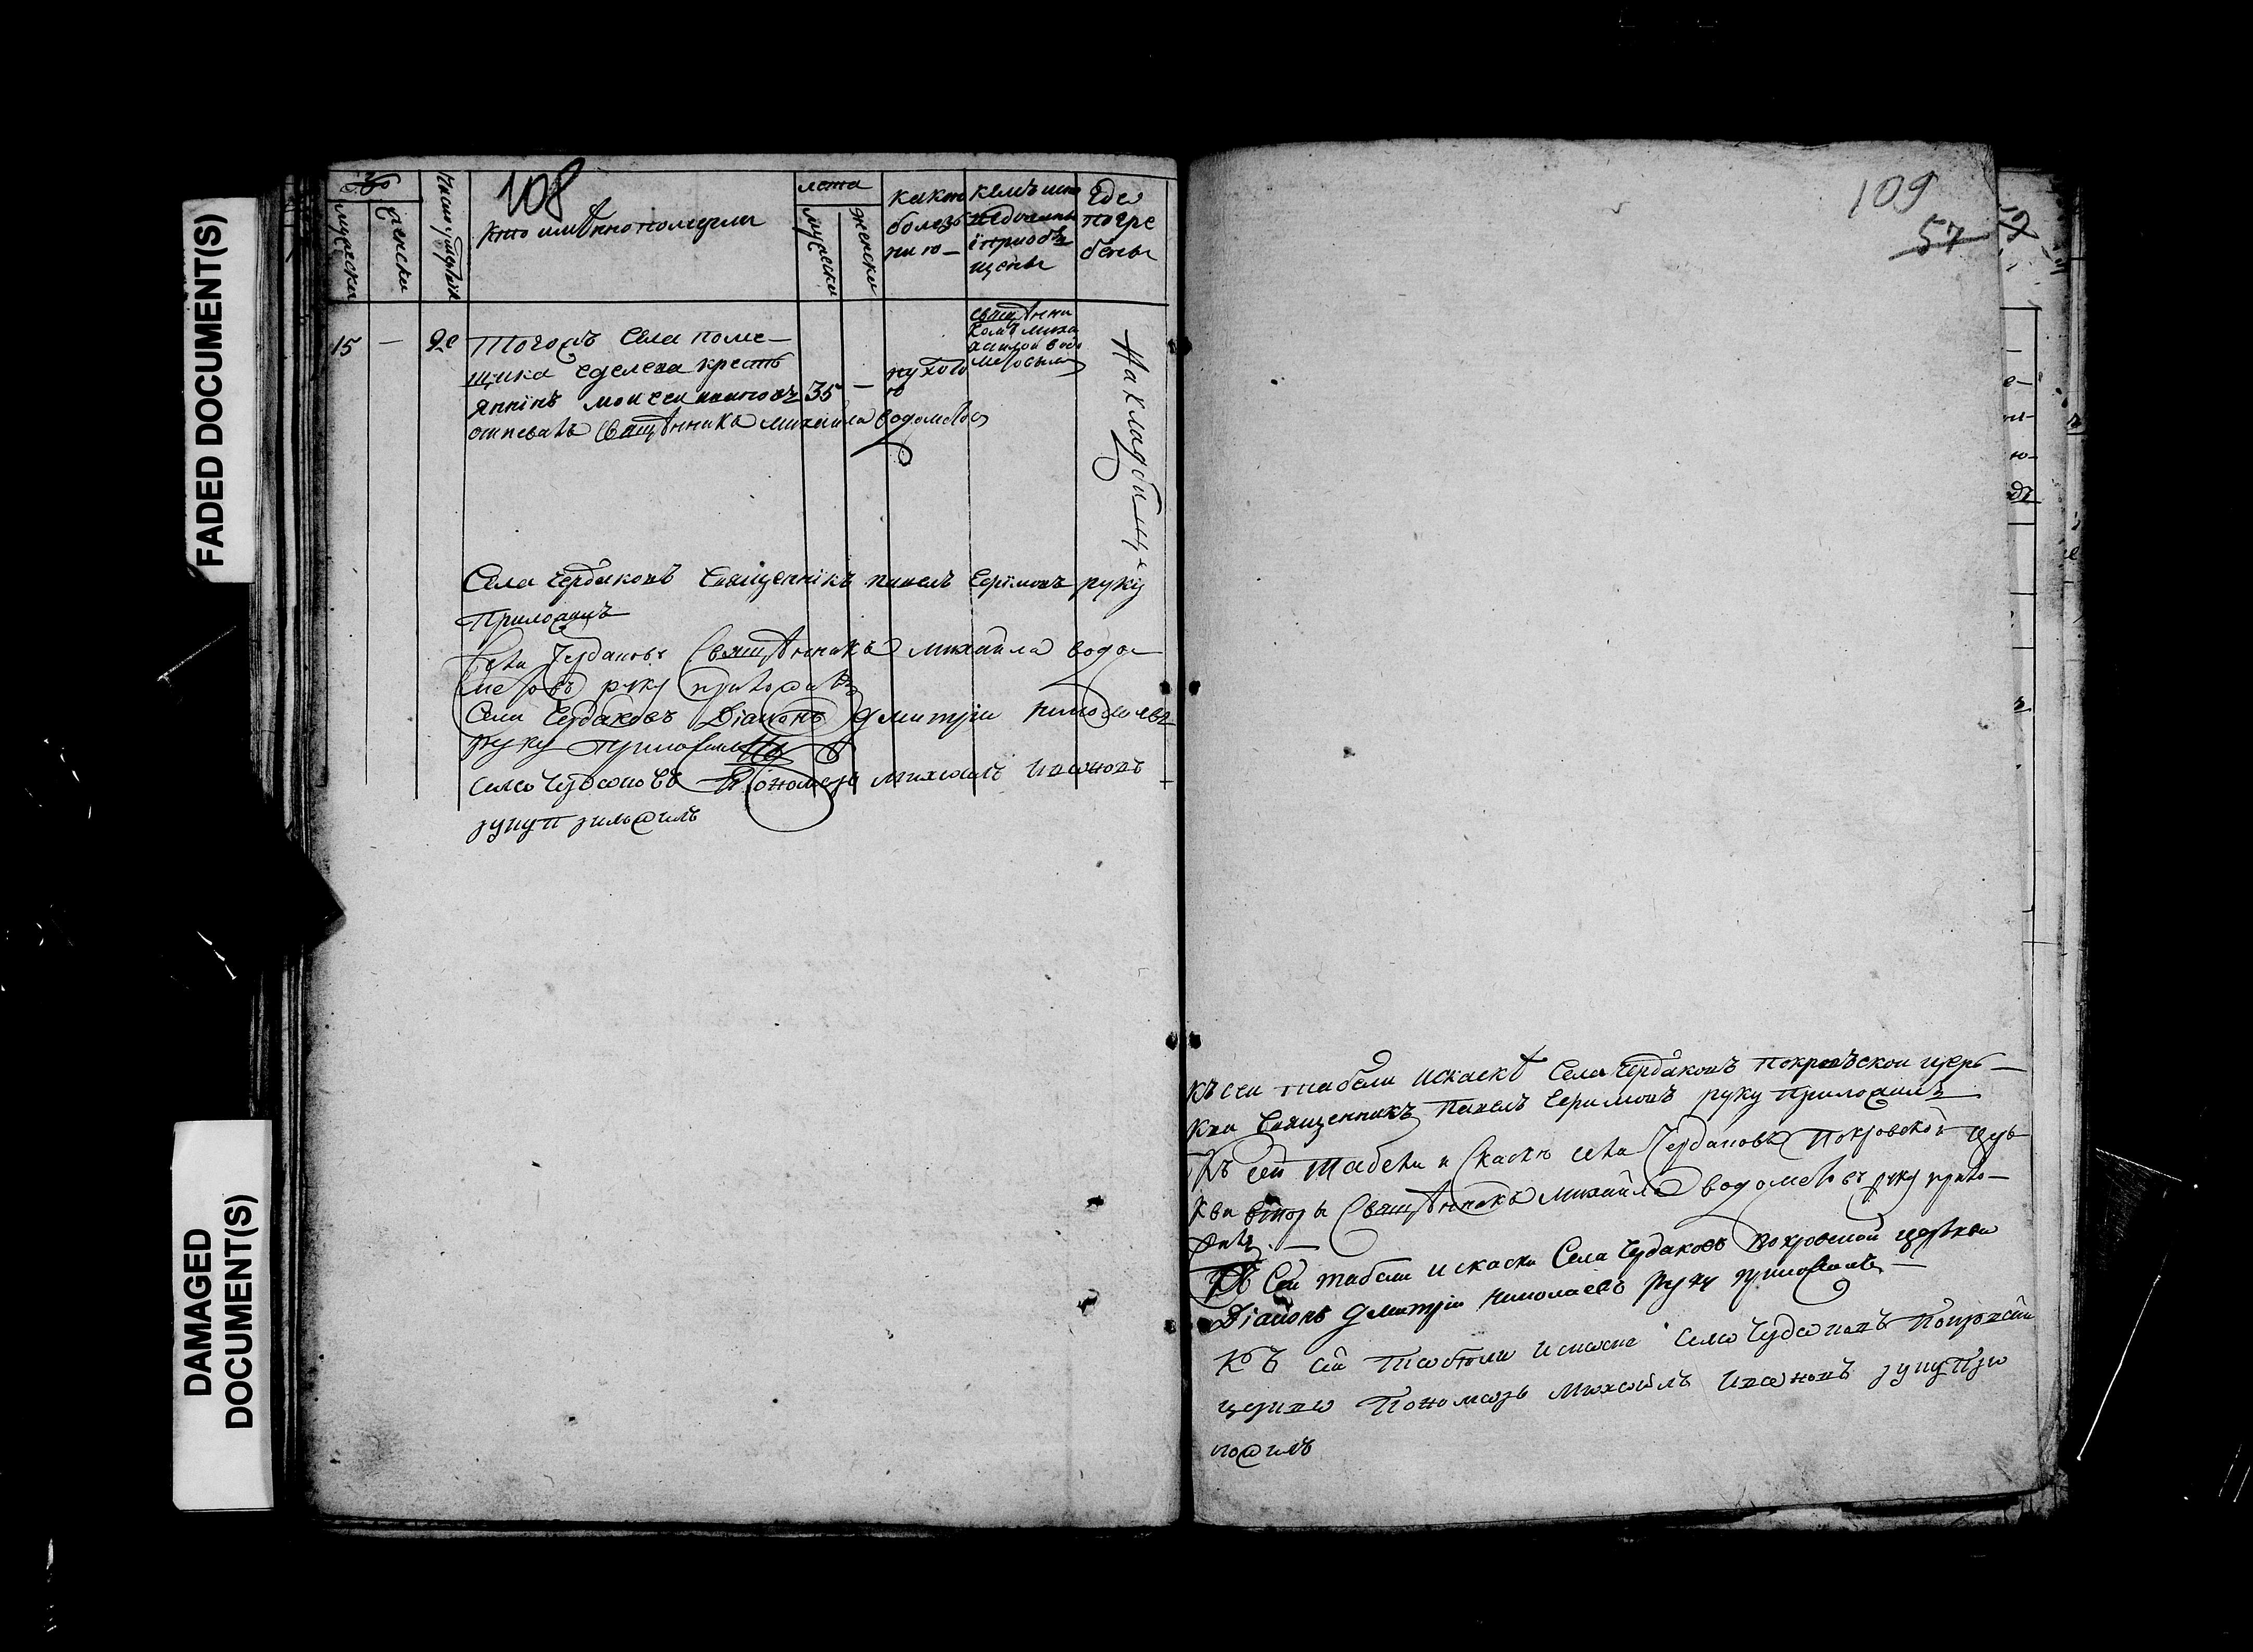 FADED DOCUMENT(S)
DAMAGED DOCUMENT(S)
108
мужеска
женска
число
кто имѣнно померли
лета
мужеска
женска
какою
болезь
нию
кемъ
исповеданы
и приоб
щены
где
погре
бены
15 — 9е
Тогожъ села поме
щика крестъ
янинъ моисеи 35 —
отпевалъ священника михаила водометов
священни
комъ миха
илои водо
метовым
На кладбищѣ
Села Чердаковъ Священникъ павелъ Ефимовъ руку
Приложилъ
Села Чердаковъ Священникъ михаила водо
метовъ руку приложилъ
Села Чердаковъ Діаконъ Дмитрии николаевъ
руку приложилъ
села Чердаковъ Пономарь михаилъ Ивановъ
руку приложилъ
109
57
Къ сеи табели искаскѣ Села Чердаковъ Покровъскои церь
кви Священникъ Павелъ Ефимовъ руку Приложилъ
Къ сеи табели и скаски села Чердаковъ Покровскои церь
кви вторы Священникъ михаила водометовъ руку прило
жилъ
Къ Сеи табели искаски Села Чердаковъ Покровскои церкви
Діаконъ Дмитріи николаевъ руку приложилъ
Къ сеи табели искаске села Чердаковъ Покровскои
церкви Пономарь Михаилъ Ивановъ руку при
ложилъ